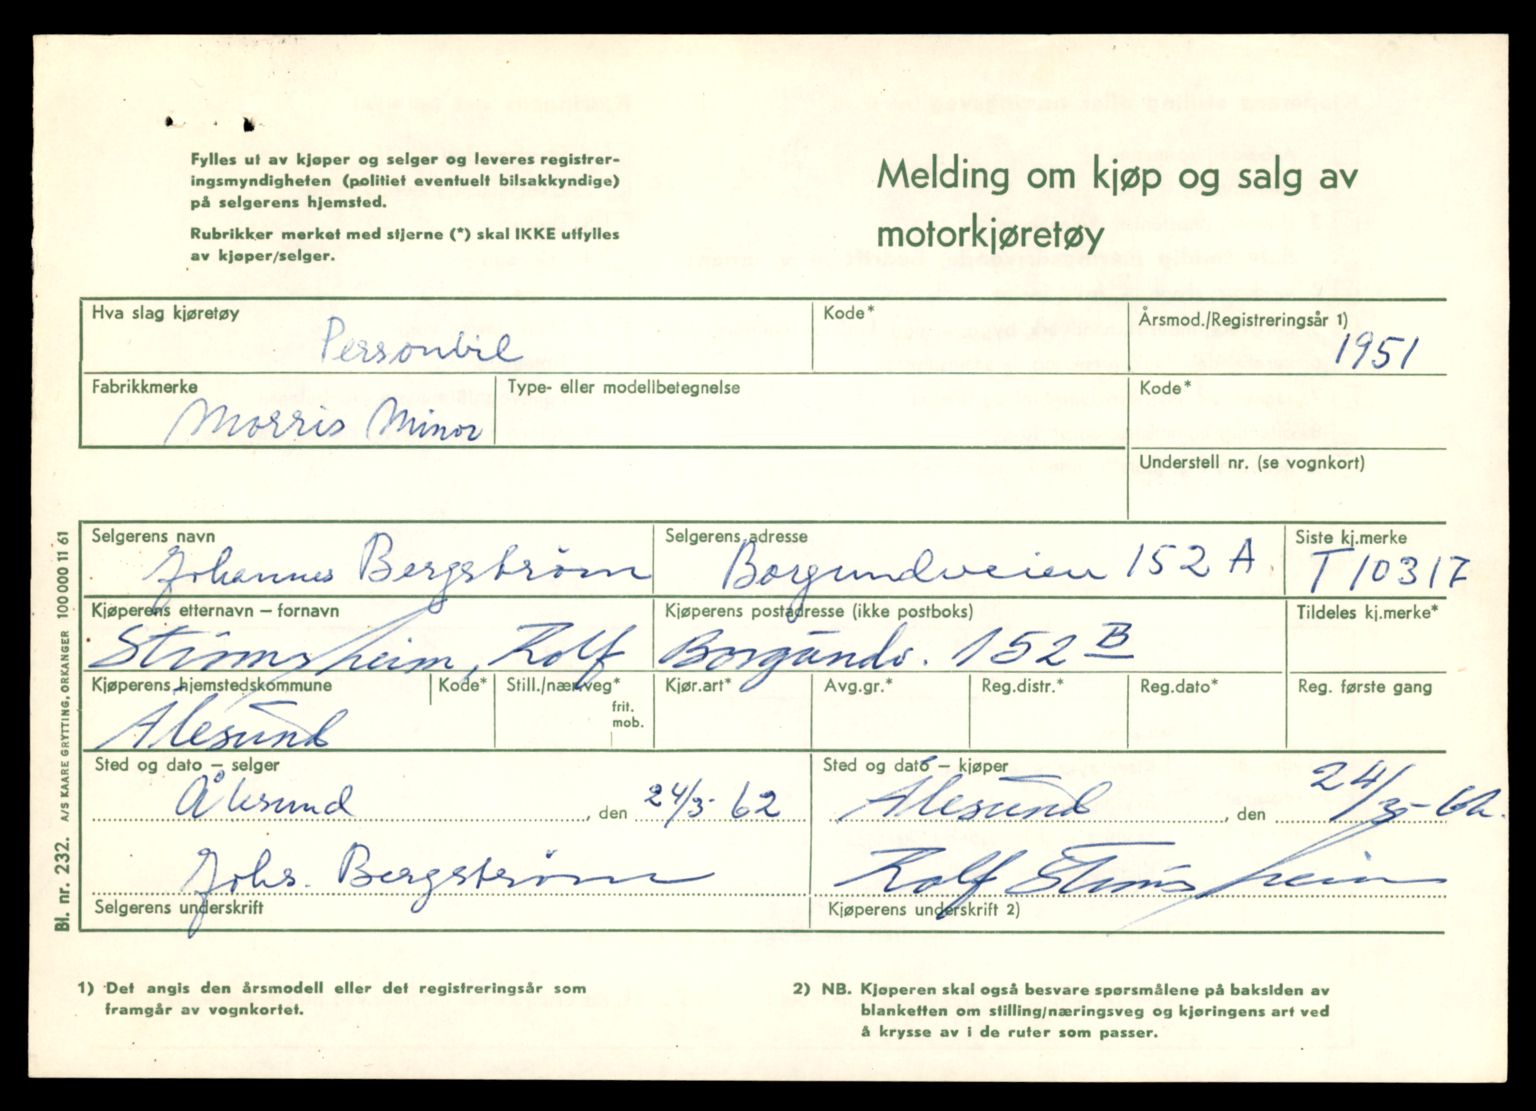 Fylles ut av kjøper og selger og leveres registrer-
ingsmyndigheten (politiet eventuelt bilsakkyndige)
på selgerens hjemsted.
Rubrikker merket med stjerne (*) skal IKKE utfylles
av kjøper/selger.
Melding om kjøp og salg av
motorkjøretøy
Hva slag kjøretøy
Kode*
Årsmod./Registreringsår 1)
Personbil
1951
Fabrikkmerke
Type- eller modellbetegnelse
Kode*
Morris Minor
Understell nr. (se vognkort)
Selgerens navn
Selgerens adresse
Siste kj.merke
Johannes Bergstrøm
Borgundveien 152 A
T 10317
Kjøperens etternavn – fornavn
Kjøperens postadresse (ikke postboks)
Tildeles kj.merke*
Strømsheim, Rolf
Borgundv. 152 B
Kjøperens hjemstedskommune
Kode*
Still./nær.veg*
Kjør.art*
Avg.gr.*
Reg.distr.*
Reg.dato*
Reg. første gang
frit.
mob.
Ålesund
Sted og dato – selger
Sted og dato – kjøper
Ålesund, den 24/3- 62
Ålesund, den 24/3- 62.
Johs. Bergstrøm
Rolf Strømsheim
Selgerens underskrift
Kjøperens underskrift 2)
1) Det angis den årsmodell eller det registreringsår som
framgår av vognkortet.
2) NB. Kjøperen skal også besvare spørsmålene på baksiden av
blanketten om stilling/næringsveg og kjøringens art ved
å krysse av i de ruter som passer.
Bl. nr. 232. A/S KAARE GRYTTING, ORKANGER 100 000 11 61